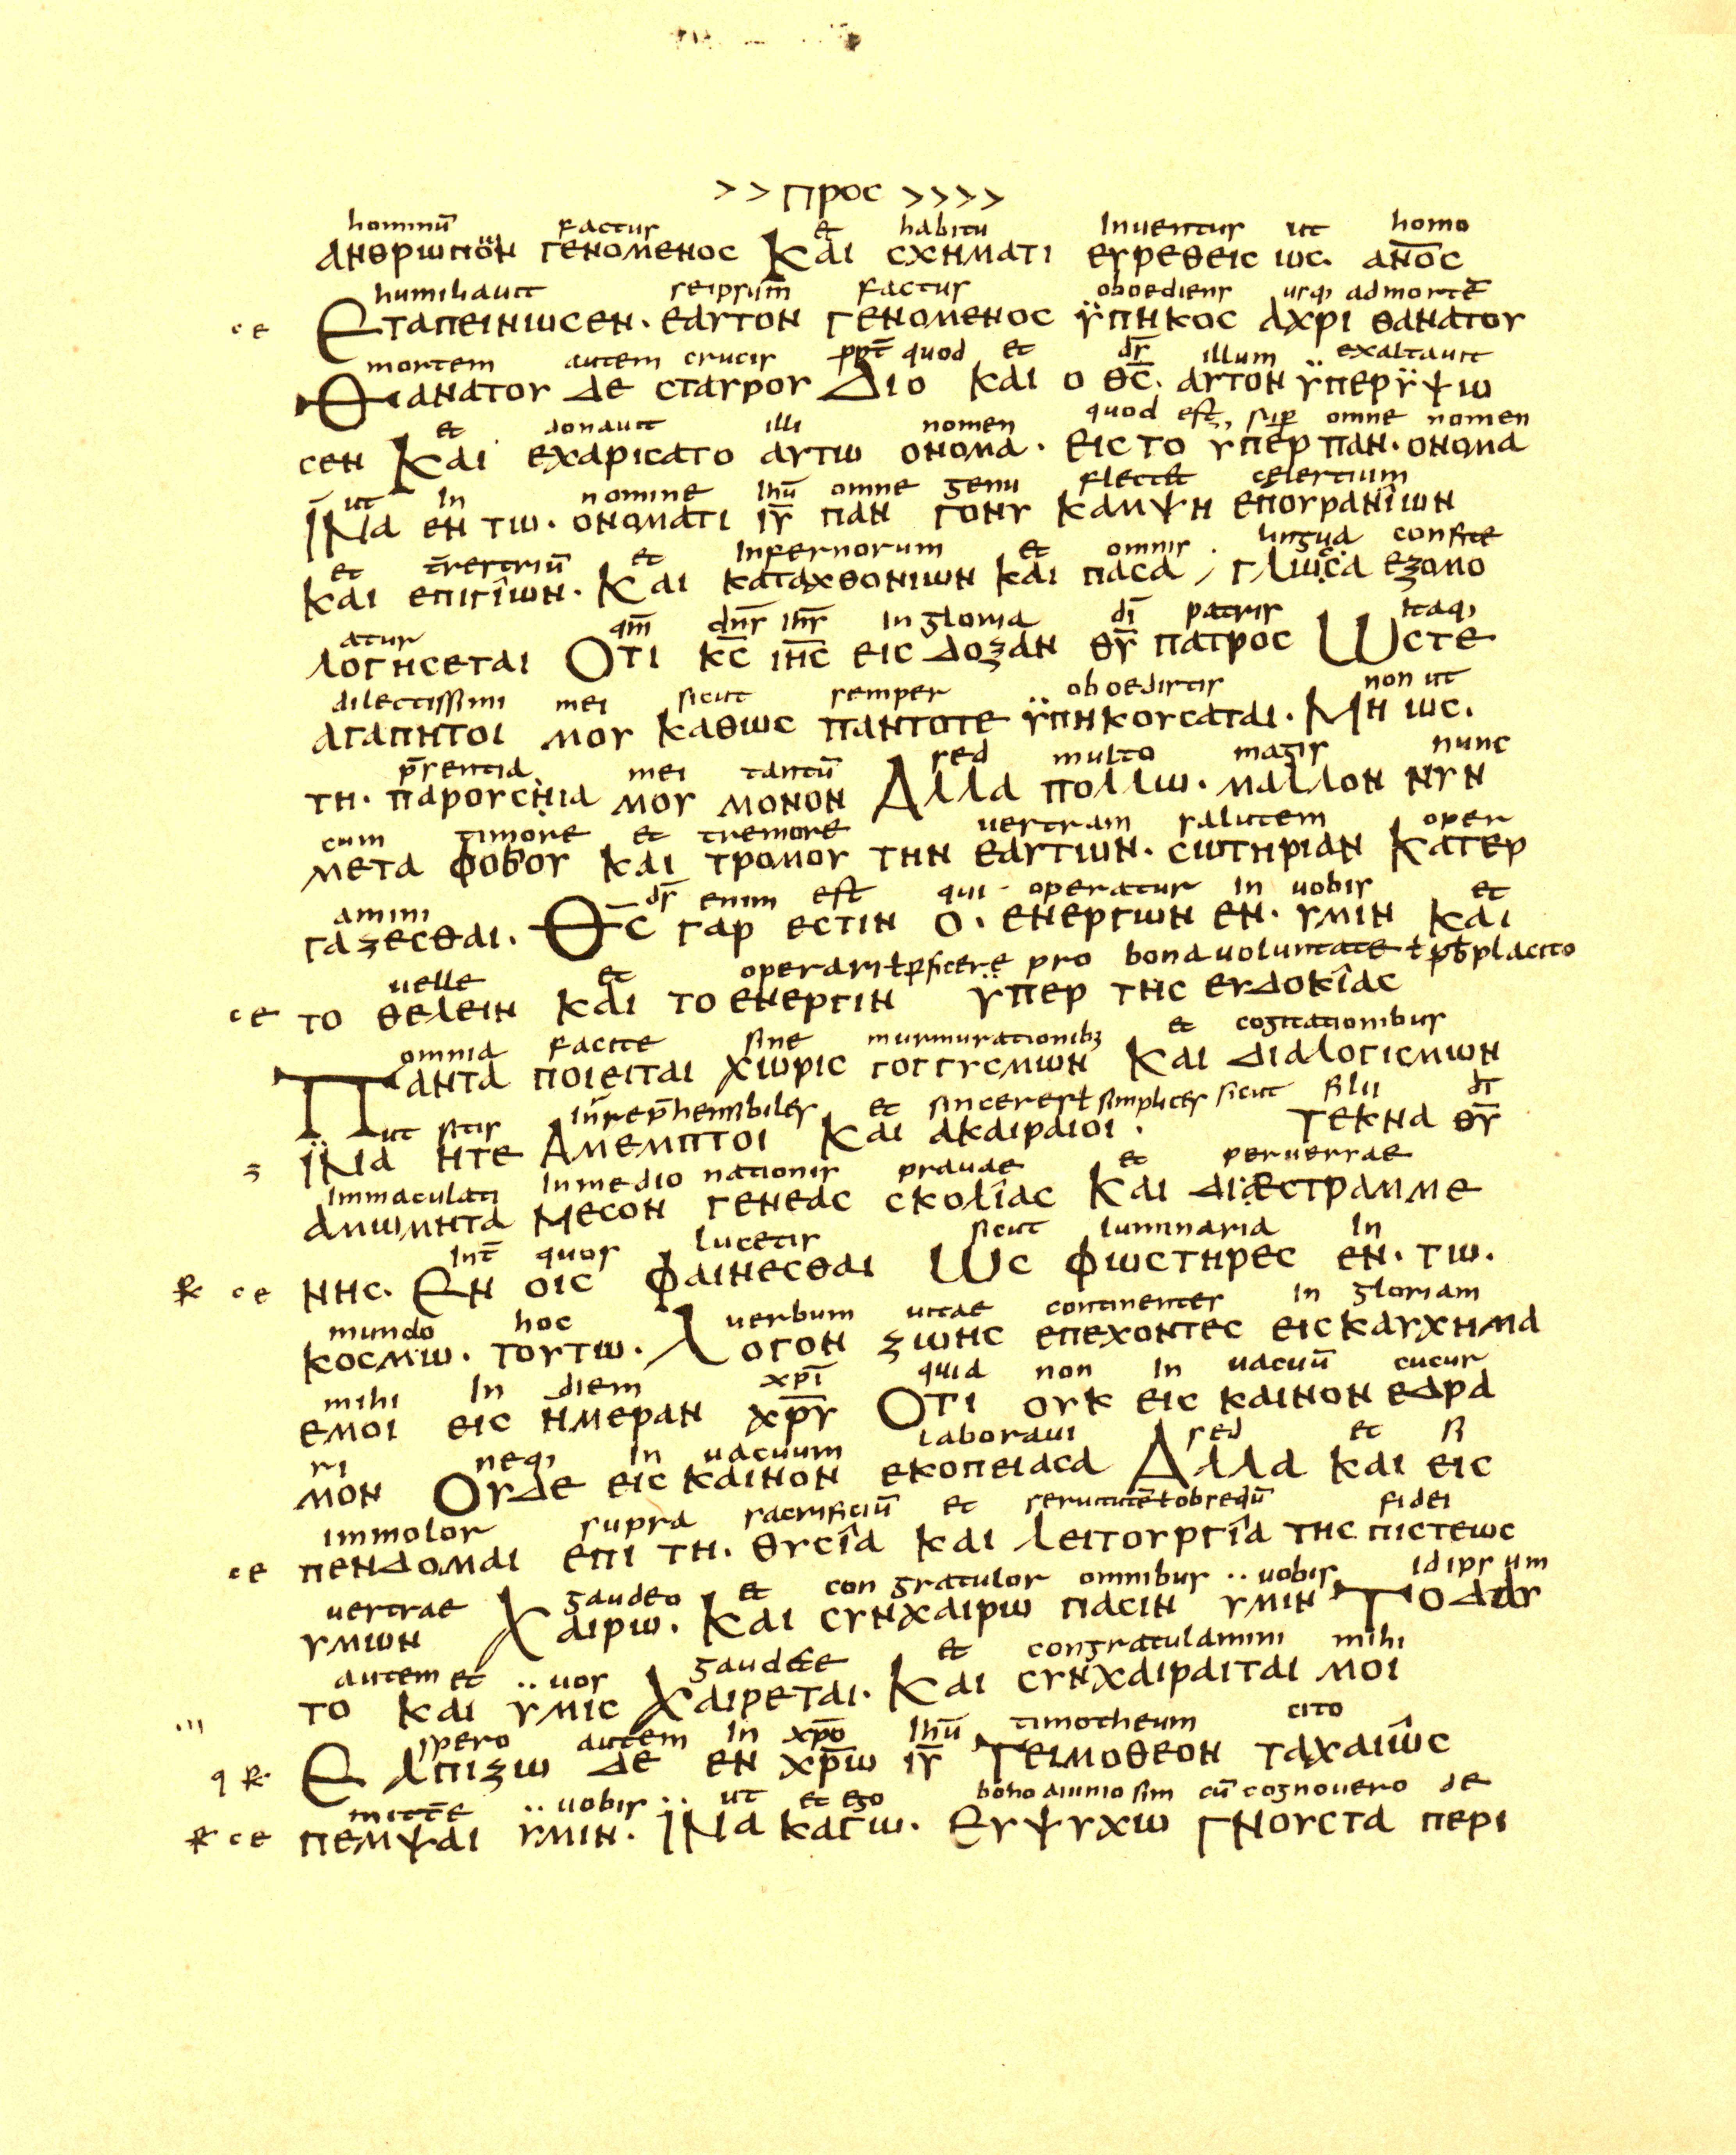 > > Προс > > > >
hominū factur et habitu Inuentur ut homo
ανθρωπὸν γενομενοс Και сχηματι ευρεθειс ωс. ᾱνο̄с
humiliauit seipsum̄ factur oboediens usq, ad morte̅
сε Εταπεινωсεν. εαυτον γενομενοс ϋπηκοс αχρι θανατου
mortem autem crucis ppt̄ quod et dr̄ illum exaltauit
Θανατου δε сταυρου Διο και ο θ̅с̅. αυτον ϋπερϋψω
et donauit illi nomen quod est, sup̄ omne nomen
сεν Και εχαριсατο αυτω ονομα. ειс το υπερ παν. ονομα
ut In nomine Ihū omne genu flectet celestium
ΙΝα εν τω. ονοματι ιυ̅ παν γονυ καμψη επουρανίων
et t̄restriū et Infernorum et omnis lingua confite
και επιγίων. Και καταχθονιων και παсα, γλωсα εξομο
atur qm̄ dn̄s ihs̄ In gloria dī patris Itaq,
λογηсεται Οτι κ̅с̅ ιη̅с̅ ειс δοξαν θυ̅ πατροс Ωсτε
dilectissimi mei sicut semper oboedistis non ut
αγαπητοι μου καθωс παντοτε ϋπηκουсαται. Μη ωс.
p̄sentia mei tantū sed multo magis nunc
τη. παρουсηια μου μονον Αλλα πολλω. μαλλον νυν
cum timore et tremore uestram salutem oper
μετα φοβου και τρομου την εαυτων. сωτηριαν Κατερ
amini dr̄ enim est qui operatur In uobis et
γαζεсθαι. Θ̅с γαρ εсτιν ο. ενεργων εν. υμιν και
uelle et operari ł p̱ficere pro bona uoluntate ł p̱ b placito
сε το θελειν και το ενεργιν ϋπερ τηс ευδοκίαс
omnia facite sine murmurationibȝ et cogitationibus
Παντα ποιειται χωριс γογγυсμων Και διαλογιсμων
ut sitis Inrep̄hensibiles et sinceres ł simplices sicut filii dī
ζ ΪΝα ητε Αμεμπτοι Και ακαιραιοι. τεκνα θυ̅
Immaculati In medio nationis prauae et peruersae
αμωμητα Μεсον γενεαс сκολίαс Και διαεсτραμμε
Int̄ quos lucetis sicut luminaria In
R сε νηс. Εν οιс φαινεсθαι Ωс φωсτηρεс εν. τω.
mundo hoc uerbum uitae continentes In gloriam
κοсμω. τουτω. Λογον ζωηс επεχοντεс ειс καυχημα
mihi In diem xpī quia non In uacuū cucur
εμοι ειс ημεραν χρ̅υ Οτι ουκ ειс καινον εδρα
ri neq, In uacuum laboraui sed et si
μον Ουδε ειс καινον εκοπειαсα Αλλα και ειс
immolor supra sacrificiū et seruitutē ł obsequī fidei
сε πενδομαι επι τη. θυсία και λειτουργία τηс πιсτεωс
uestrae gaudeo et congratulor omnibus ·· uobis id ipsum
υμων Χαιρω. Και сυνχαιρω παсιν υμιν Το δ αυ
autem et ·· uos gaudete et congratulamini mihi
το και υμιс Χαιρεται. Και сυνχαιραιται μοι
spero autem In xpō Ihū timotheum cito
q R Ελπιζω δε εν χρ̅ω ιυ̅ Τειμοθεον ταχαιωс
mitte ·· uobis ·· ut et ego bono animo sim cū cognouero de
R сε πεμψαι υμιν. ΙΝα καγω. Ευψυχω Γνουсτα περι